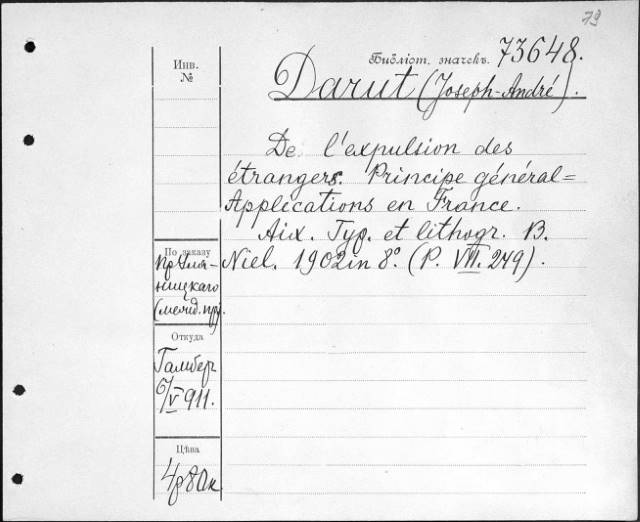 79
Библіот. значекъ. 73648.
Инв.
№
Darut (Joseph-André).
De l'expulsion des
étrangers. Principe général=
Applications en France.
Aix. Typ. et lithogr. B.
Niel. 1902 in 8º. (P. VII. 279).
По заказу
ницкаго
(межд. пр).
Откуда
6/V 911.
Цѣна
4р 80к